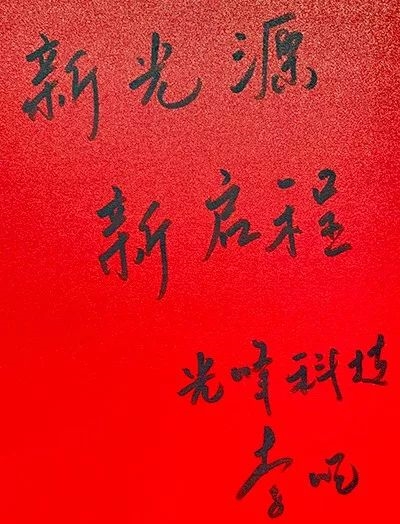 新光源
新启程
光峰科技
李屹